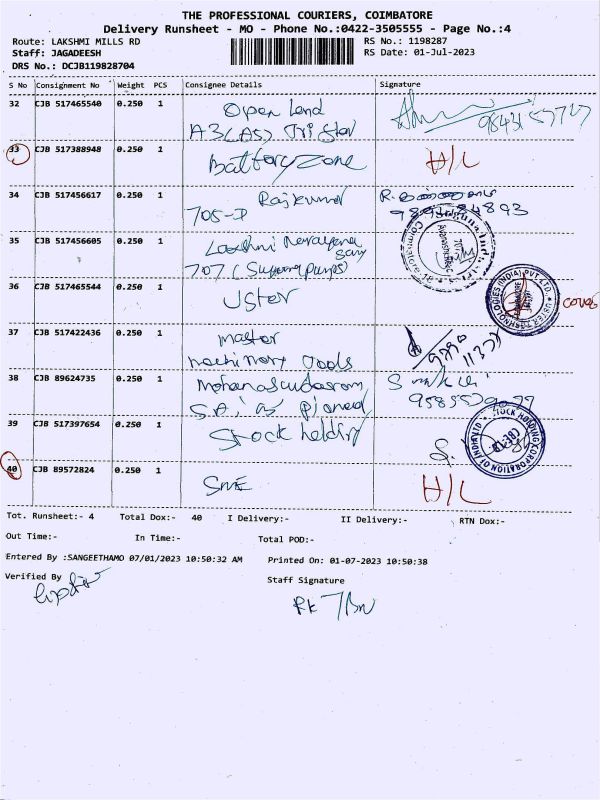 THE PROFESSIONAL COURIERS, COIMBATORE
Delivery Runsheet - MO - Phone No.:0422-3505555 - Page No.:4
Route: LAKSHMI MILLS RD RS No.: 1198287
Staff: JAGADEESH RS Date: 01-Jul-2023
DRS No.: DCJB119828704
S No Consignment No Weight PCS Consignee Details Signature
32 CJB 517465540 0.250 1 Open Land
A3(AS) Tri Star
33 CJB 517388948 0.250 1 Battery Zone H/L
34 CJB 517456617 0.250 1 Rajkumar
705-D
35 CJB 517456605 0.250 1 Laxshmi Narayana
707 (Supremepumps)
36 CJB 517465544 0.250 1 Uster
37 CJB 517422436 0.250 1 master
machinory Tools
38 CJB 89624735 0.250 1 Mohanasundaram
39 CJB 517397654 0.250 1 Stock holding
STOCK HOLDING CORPORATION OF INDIA LTD
40 CJB 89572824 0.250 1 SME H/L
Tot. Runsheet:- 4 Total Dox:- 40 I Delivery:- II Delivery:- RTN Dox:-
Out Time:- In Time:- Total POD:-
Entered By :SANGEETHAMO 07/01/2023 10:50:32 AM Printed On: 01-07-2023 10:50:38
Verified By Staff Signature